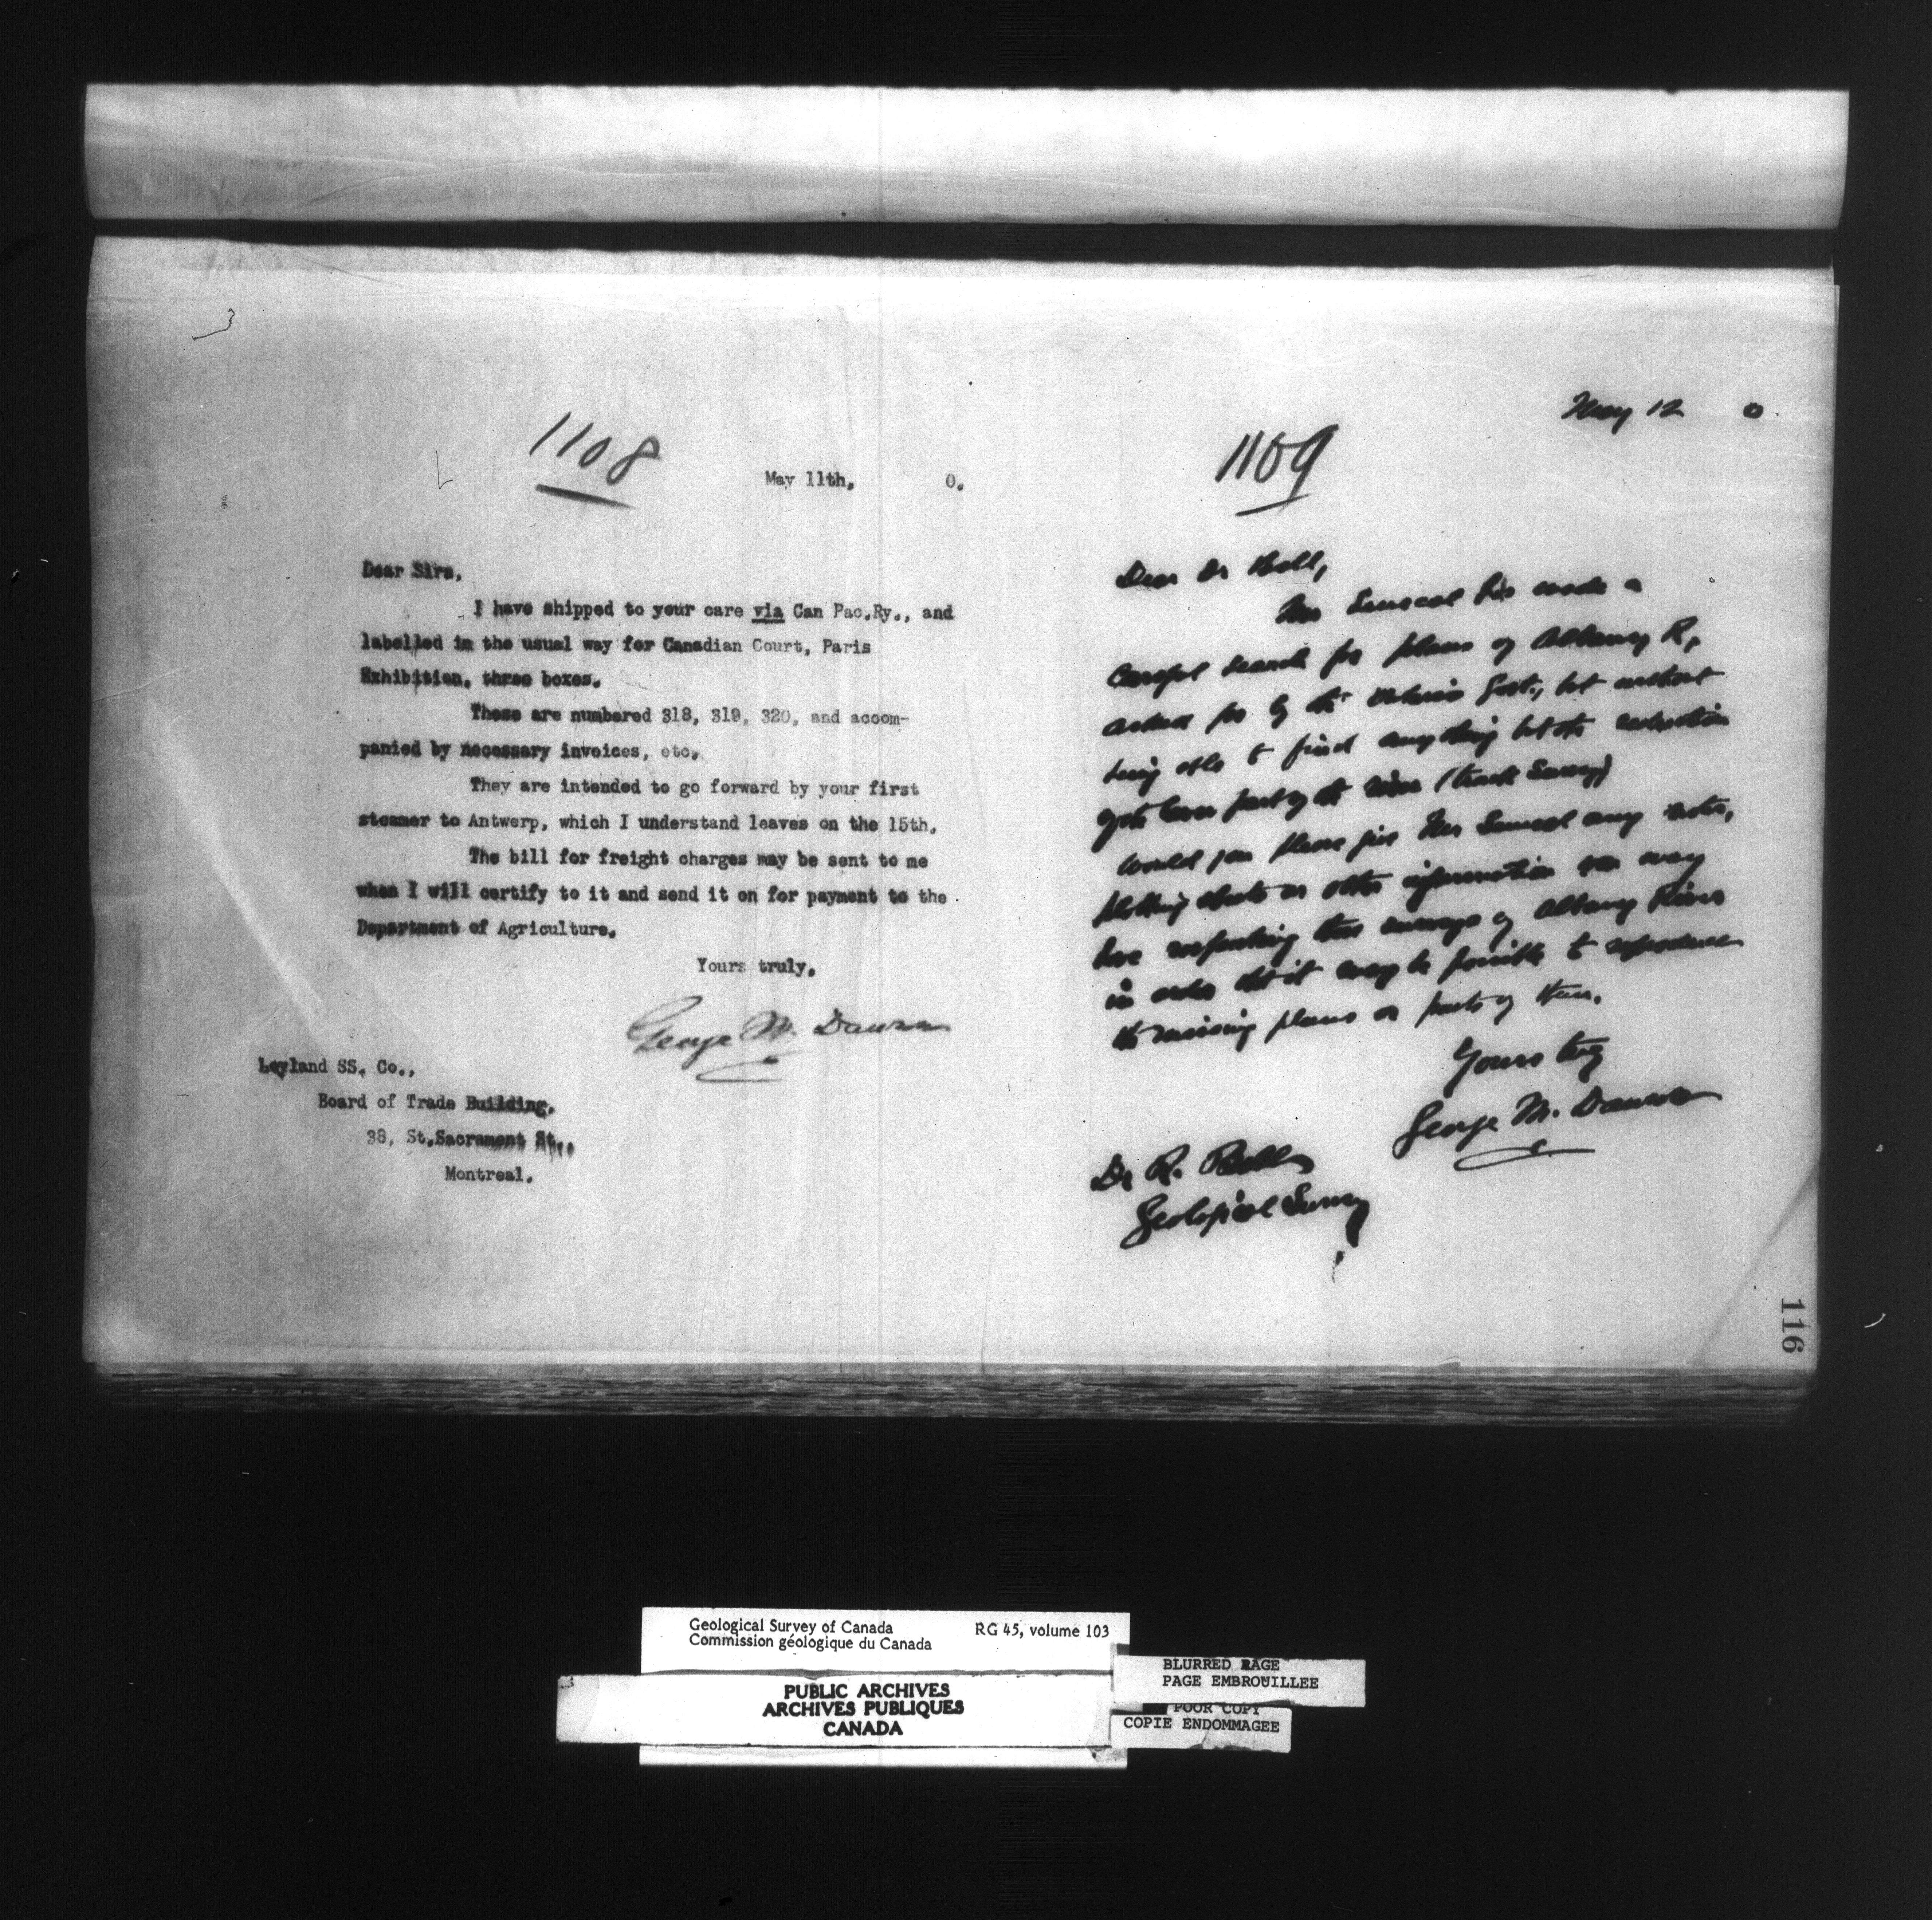 3
1108
May 11th, 0.
Dear Sirs,
I have shipped to your care via Can Pac.Ry., and
labelled in the usual way for Canadian Court, Paris
Exhibition, three boxes.
These are numbered 318, 319, 320, and accom-
panied by necessary invoices, etc.
They are intended to go forward by your first
steamer to Antwerp, which I understand leaves on the 15th.
The bill for freight charges may be sent to me
when I will certify to it and send it on for payment to the
Department of Agriculture.
Yours truly,
George M. Dawson
Leyland SS. Co.,
Board of Trade Building,
38, St.Sacrament St.,
Montreal.
May 12 0
1109
Dear Dr Bell,
Mr Senecal has made a
careful search for plans of Albany R,
asked for by the Ontario Govt., but without
being able to find anything but the reduction
of the lower part of the river (track survey)
Would you please give Mr Senecal any notes,
plotting sheets or other information you may
have respecting the surveys of Albany River
in order that it may be possible to reproduce
the missing plans or parts of them.
Yours truly
George M. Dawson
Dr R. Bell
Geological Survey
116
Geological Survey of Canada RG 45, volume 103
Commission géologique du Canada
PUBLIC ARCHIVES
ARCHIVES PUBLIQUES
CANADA
BLURRED PAGE
PAGE EMBROUILLEE
POOR COPY
COPIE ENDOMMAGEE